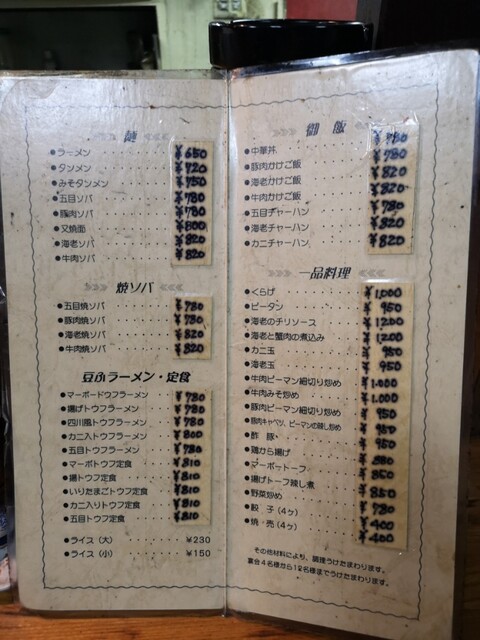 麺
●ラーメン ¥650
●タンメン ¥720
●みそタンメン ¥750
●五目ソバ ¥780
●豚肉ソバ ¥780
●叉焼面 ¥800
●海老ソバ ¥820
●牛肉ソバ ¥820
焼ソバ
●五目焼ソバ ¥780
●豚肉焼ソバ ¥780
●海老焼ソバ ¥820
●牛肉焼ソバ ¥820
豆ふラーメン・定食
●マーボードウフラーメン ¥780
●揚げトウフラーメン ¥780
●四川風トウフラーメン ¥780
●カニ入トウフラーメン ¥800
●五目トウフラーメン ¥780
●マーボトウフ定食 ¥810
●揚トウフ定食 ¥810
●いりたまごトウフ定食 ¥810
●カニ入りトウフ定食 ¥810
●五目トウフ定食 ¥810
●ライス（大） ¥230
●ライス（小） ¥150
御飯
●中華丼 ¥780
●豚肉かけご飯 ¥780
●海老かけご飯 ¥820
●牛肉かけご飯 ¥820
●五目チャーハン ¥780
●海老チャーハン ¥820
●カニチャーハン ¥820
一品料理
●くらげ ¥1,000
●ピータン ¥950
●海老のチリソース ¥1200
●海老と蟹肉の煮込み ¥1,200
●カニ玉 ¥950
●海老玉 ¥950
●牛肉ピーマン細切り炒め ¥1,000
●牛肉みそ炒め ¥1,000
●豚肉ピーマン細切り炒め ¥950
●豚肉キャベツ、ピーマンの辣し炒め ¥950
●酢豚 ¥950
●鶏から揚げ
●マーボートーフ ¥850
●揚げトーフ辣し煮 ¥850
●野菜炒め ¥780
●餃子（4ヶ） ¥400
●焼・売（4ヶ） ¥400
その他材料により、調理うけたまわります。
宴会4名様から12名様までうけたまわります。